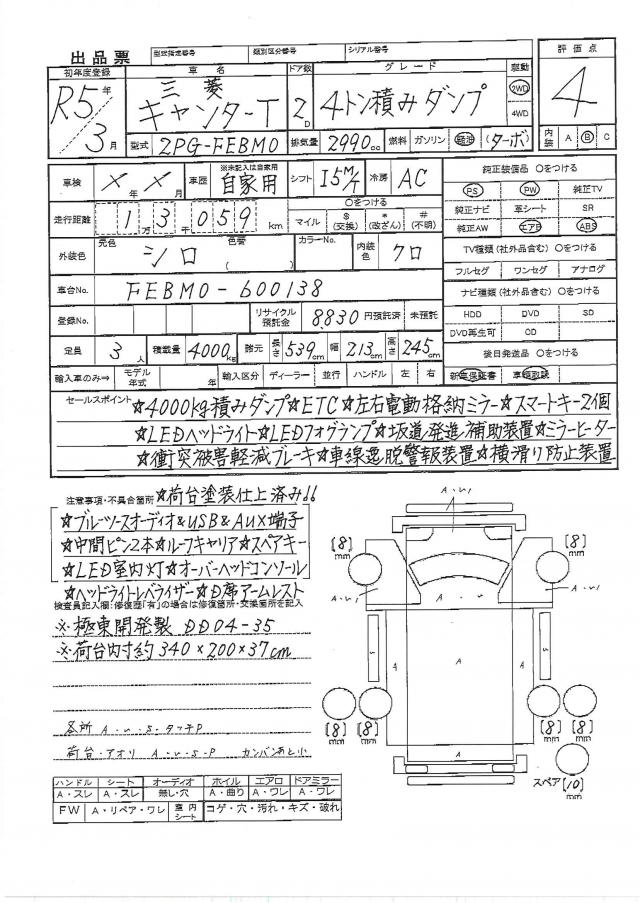 出品票 型式指定番号 類別区分番号 シリアル番号
初年度登録 車名 ドア数 グレード 駆動 評価点
R5年 三菱 2WD
3月 キャンターT 2D 4トン積みダンプ 4WD 4
型式 2PG-FEBM0 排気量 2990cc 燃料 ガソリン 軽油 (ターボ) 内装 A B C
車検 ×年×月 車歴 ※未記入は自家用 自家用 シフト I5M/T 冷房 AC 純正装備品 ○をつける
PS PW 純正TV
走行距離 1万3千059km ○をつける マイル $(交換) *(改ざん) #(不明) 純正ナビ 革シート SR
純正AW エアB ABS
外装色 元色 シロ 色替 ( ) カラーNo. 内装色 クロ TV種類(社外品含む) ○をつける
フルセグ ワンセグ アナログ
車台No. FEBM0-600138 ナビ種類(社外品含む) ○をつける
登録No. リサイクル預託金 8,830円預託済 未預託 HDD DVD SD
DVD再生可 CD
定員 3人 積載量 4000kg 諸元 長さ 539cm 幅 213cm 高さ 245cm 後日発送品 ○をつける
輸入車のみ⇒ モデル年式 年 輸入区分 ディーラー 並行 ハンドル 左 右 新車保証書 車輌取説
セールスポイント ☆4000kg積みダンプ☆ETC☆左右電動格納ミラー☆スマートキー2個
☆LEDヘッドライト☆LEDフォグランプ☆坂道発進補助装置☆ミラーヒーター
☆衝突被害軽減ブレーキ☆車線逸脱警報装置☆横滑り防止装置
注意事項・不具合箇所 ☆荷台塗装仕上済み!!
☆ブルーツースオーディオ&USB&AUX端子
☆中間ピン2本☆ルーフキャリア☆スペアキー
☆LED室内灯☆オーバーヘッドコンソール
☆ヘッドライトレベライザー☆D席アームレスト
検査員記入欄:修復歴「有」の場合は修復箇所・交換箇所を記入
※極東開発製 DD04-35
※荷台内寸約340×200×37cm
各所 A・U・S・タッチP
荷台・アオリ A・U・S・P カンバンあと小
A・U1
[8]mm [8]mm
A・U1 A・U1
S S
A A A
[8]mm [8]mm [8]mm [8]mm
A
スペア [10]mm
ハンドル シート オーディオ ホイル エアロ ドアミラー
A・スレ A・スレ 無し・穴 A・曲り A・ワレ A・ワレ
FW A・リペア・ワレ 室内シート コゲ・穴・汚れ・キズ・破れ